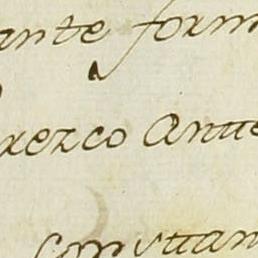 ante form
rezco Ante
constan